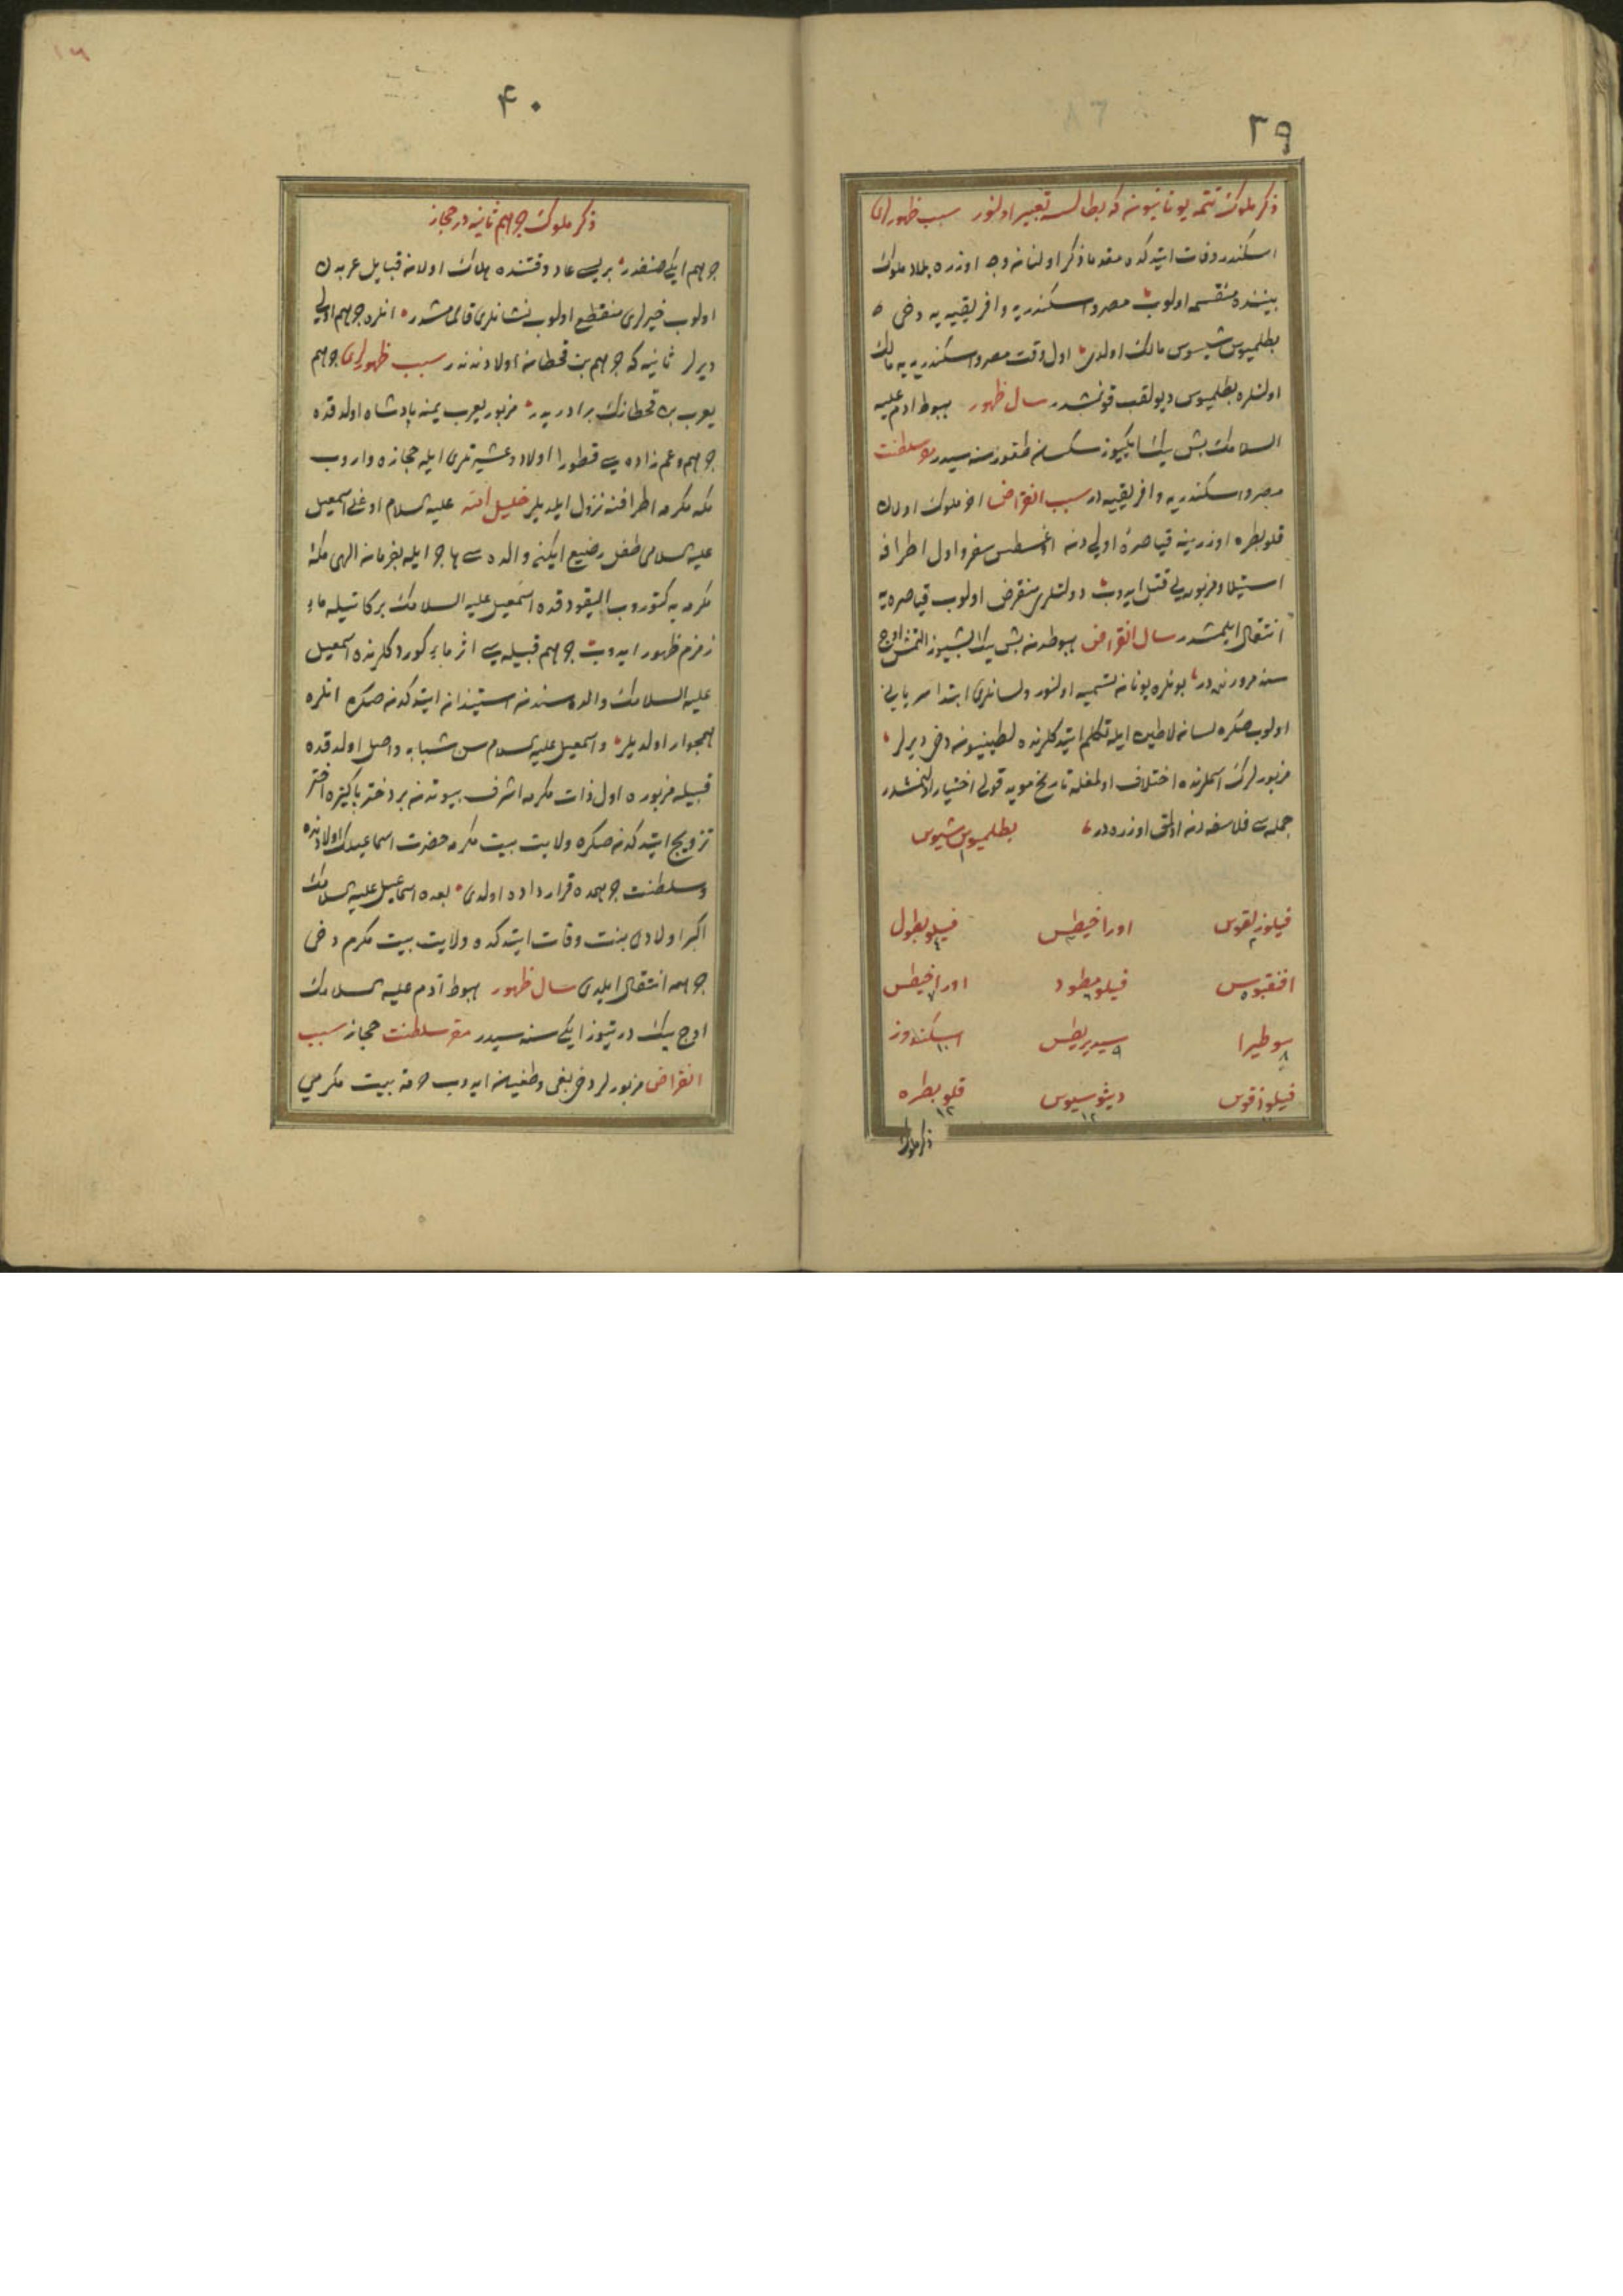 ٣٩
ذكر ملوك تتمه يونانيونه كه بطالسه تعبير اولنور سبب ظهورلرى
اسكندر وفات ايتدكده مقدما ذكر اولنان وجه اوزره بلاد ملوك
بيننده منقسمه اولوب مصر واسكندريه وافريقيه يه دخى
بطلميوس شيسوس مالك اولدى اول وقت مصر واسكندريه يه مالك
اولنلره بطلميوس ديو لقب قونمشدر سال ظهور هبوط ادم عليه
السلامك بش بيك ايكيوز سكسان طقوز سنه سيدر مقر سلطنت
مصر واسكندريه وافريقيه در سبب انقراض اخر ملوك اولان
قلوبطره اوزرينه قياصرۀ اولى دن اغسطس سفر واول اطرافه
استيلا ومزبوره يى قتل ايدوب دولتلرى منقرض اولوب قياصره يه
انتقال ايلمشدر سال انقراض هبوطدن بش بيك بشيوز التمش اوج
سنه مرورنده در بونلره يونان تسميه اولنور ولسانلرى ابتدا سريانى
اولوب صكره لسان لاطين ايله تكلم ايتدكلرنده لطينيون دخى ديرلر
مزبورلرك اسملرنده اختلاف اولمغله تاريخ مويد قولى اختيار اولنمشدر
جمله سى فلاسفه دن اولمق اوزره در بطلميوس شيوس ١
فيلوزلقوس ٢ اوراخيطس ٣ فيلوبطول ٤
افنقيوس ٥ فيلومطود ٦ اوراخيطس ٧
سوطيرا ٨ سيديريطس ٩ اسكندروز ١٠
فيلوزقوس ١١ دينوسيوس ١٢ قلوبطره ١٣
ذكر ملوك
٤٠
ذكر ملوك جرهم ثانيه در حجاز
جرهم ايكى صنفدر بريسى عاد وقتنده هلاك اولان قبايل عربدن
اولوب خبرلرى منقطع اولوب نشانلرى قالمامشدر انلره جرهم اولى
ديرلر ثانيه كه جرهم بن قحطان اولادندندر سبب ظهورلرى جرهم
يعرب بن قحطانك برادريدر مزبور يعرب يمنه پادشاه اولدقده
جرهم وعم زاده سى قطورا اولاد وعشيرتلرى ايله حجازه واروب
مكه مكرمه اطرافنه نزول ايلديلر خليل الله عليه السلام اوغلى اسمعيل
عليه السلامى طفل رضيع ايكن والده سى هاجر ايله بفرمان الهى مكه
مكرمه يه كتوروب اليقودقده اسمعيل عليه السلامك بركاتيله ماء
زمزم ظهور ايدوب جرهم قبيله سى اثر ماء كوردكلرنده اسمعيل
عليه السلامك والده سندن استيذان ايتدكدن صكره انلره
همجوار اولديلر واسمعيل عليه السلام سن شبابه واصل اولدقده
قبيله مزبوره اول ذات مكرمه اشرف بيوتدن بر دختر پاكيزه اختر
تزويج ايتدكدن صكره ولايت بيت مكرمه حضرت اسماعيلك اولادنده
وسلطنت جرهمده قرارداده اولدى بعده اسماعيل عليه السلامك
اكبر اولادى بنت وفات ايتدكده ولايت بيت مكرم دخى
جرهمه انتقال ايلدى سال ظهور هبوط آدم عليه السلامك
اوج بيك درتيوز ايكى سنه سيدر مقر سلطنت حجاز سبب
انقراض مزبورلر دخى بغى وطغيان ايدوب حرمة بيت مكرمى